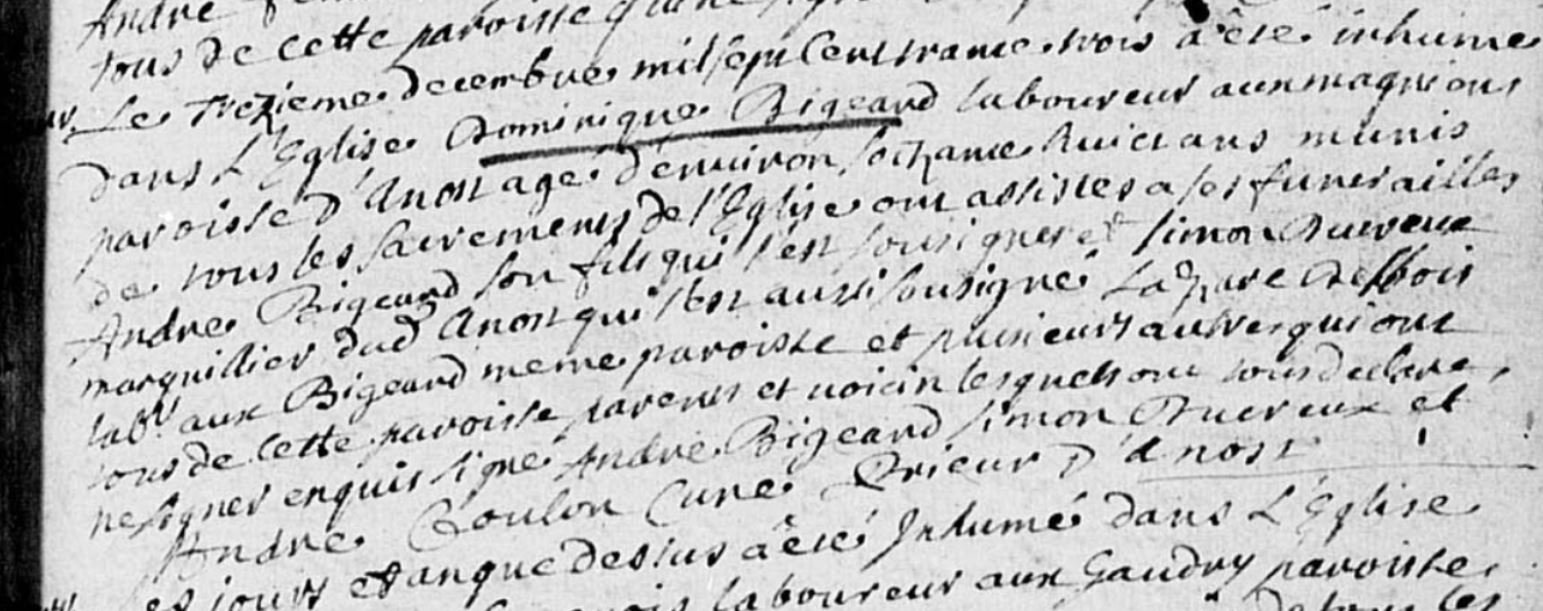 André
tous de cette paroisse
Le Trezieme decembre mil sept Cent trante trois a êté inhumé
dans L'Eglise Dominique Bigeard laboureur aux magnions
paroisse D'Anost agé d'environ soixante huict ans munis
de tous les sacrements de l'Eglise ont assistés a ses funerailles
André Bigeard son fils qui s'est sousigner et simon Ducreux
marquillier dud Anost qui s'est aussi sousigné Lazare Desbois
labr aux Bigeard meme paroisse et plusieurs autres qui ont
tous de Cette paroisse parents et voicin lesquels ont tous declare
ne signer enquis signe André Bigeard simon Ducreux et
André Coulon Curé Prieur D'Anost
es jours et an que dessus a êté Inhumé dans L'Eglise
laboureur aux Gaudry paroisse
de tous les